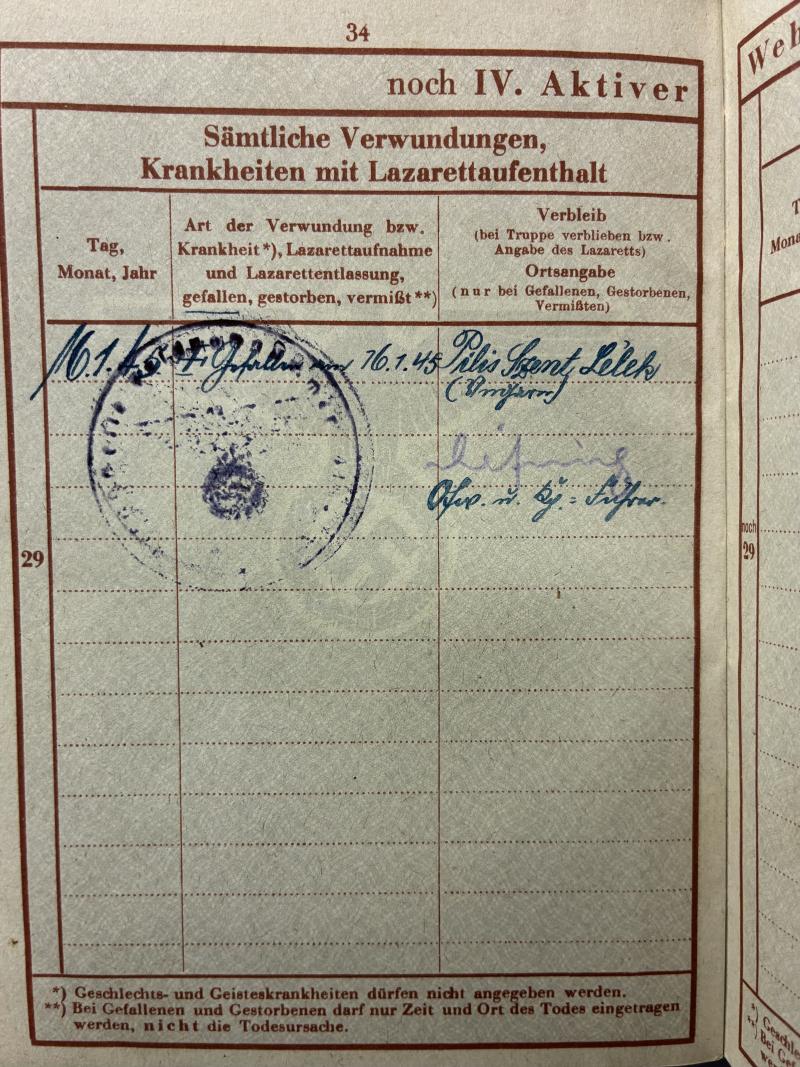 34
noch IV. Aktiver
Sämtliche Verwundungen,
Krankheiten mit Lazarettaufenthalt
Tag,
Monat, Jahr
Art der Verwundung bzw.
Krankheit*), Lazarettaufnahme
und Lazarettentlassung,
gefallen, gestorben, vermißt**)
Verbleib
(bei Truppe verblieben bzw.
Angabe des Lazaretts)
Ortsangabe
(nur bei Gefallenen, Gestorbenen,
Vermißten)
16.1.45 Gefallen am 16.1.45 Pilis Szent Lélek
(Ungarn)
Ofw. u. Kp.-Führer.
29
*) Geschlechts- und Geisteskrankheiten dürfen nicht angegeben werden.
**) Bei Gefallenen und Gestorbenen darf nur Zeit und Ort des Todes eingetragen
werden, nicht die Todesursache.
Weh
noch
29